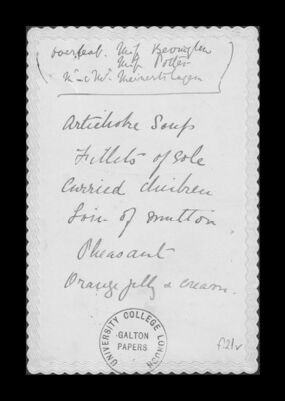 overleaf. Miss Bevington
Miss Potter
Mr & Mrs Meinertzhagen
Artichoke Soup
Fillets of sole
Curried chicken
Loin of mutton
Pheasant
Orange jelly & cream.
UNIVERSITY COLLEGE LONDON
GALTON
PAPERS
f21v